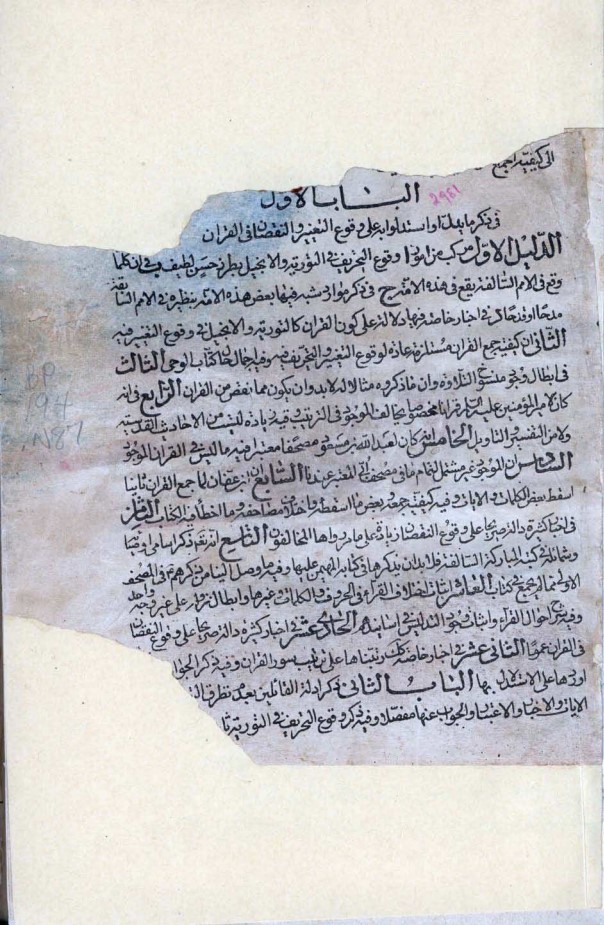 الى كيفية جمع
الباب الاول
2981
في ذكر ما يدل او استدلوا به على وقوع التغيير والنقصان في القران
الدليل الاول مركب من امور ا وقوع التحريف في التورية والانجيل بطرز حسن لطيف ب في ان كلما
وقع في الامم السالفة يقع في هذه الامة ج في ذكر موارد شبه فيها بعض هذه الامة بنظيره في الامم السابقة
مدحا او قدحا د في اخبار خاصة فيها دلالة على كون القران كالتورية والانجيل في وقوع التغيير فيه
الثاني ان كيفية جمع القران مستلزمة عادة لوقوع التغيير والتحريف فيه وفيها حال كتاب الوحى الثالث
في ابطال وجود منسوخ التلاوة وان ما ذكروه مثالا له لابد وان يكون مما نقص من القران الرابع في انه
كان لامير المؤمنين عليه السلام قرانا مخصوصا يخالف الموجود في الترتيب وفيه زيادة ليست من الاحاديث القدسية
ولا من التفسير والتاويل الخامس انه كان لعبد الله بن مسعود مصحفا معتبرا فيه ما ليس في القران الموجود
السادس ان الموجود غير مشتمل لتمام ما في مصحف ابي المعتبر عندنا السابع ان ابن عفان لما جمع القران ثانيا
اسقط بعض الكلمات والايات وفيه كيفية جمعه وبعض ما اسقطه واختلاف مصاحفه وما اخطأ فيه الكتاب الثامن
في اخبار كثيرة دالة صريحا على وقوع النقصان زيادة على ما مر رواها المخالفون التاسع انه تعالى ذكر اسامي اوصيائه
وشمائلهم في كتبه المباركة السالفة فلابد ان يذكرها في كتابه المهيمن عليها وفيه ما وصل الينا من ذكرهم في الصحف
الاولى مما لم يجمع في كتاب العاشر اثبات اختلاف القراء في الحروف والكلمات وغيرها وابطال نزوله على غير وجه واحد
وفيه شرح احوال القراء واثبات وجود التدليس في اسانيدهم الحادي عشر في اخبار كثيرة دالة صريحا على وقوع النقصان
في القران عموما الثاني عشر في اخبار خاصة كذلك رتبناها على ترتيب سور القران وفيه ذكر الجواب
اوردها على الاستدلال بها الباب الثاني في ذكر ادلة القائلين بعدم تطرق
الايات والاخبار والاعتبار والجواب عنها مفصلا وفيه ذكر وقوع التحريف في التورية
BP
194
.N87